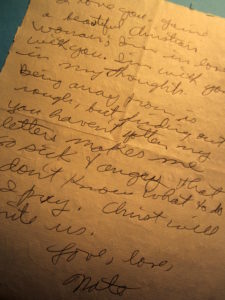 I love you. You're
a beautiful Christian
woman. I'm in love
with you. I'm with you
in my thoughts.
Being away from is
rough, but finding out
you haven't gotten my
letters makes me
so sick & angry that
don't know what to do
I pray. Christ will
us.
Love, love,
Nate